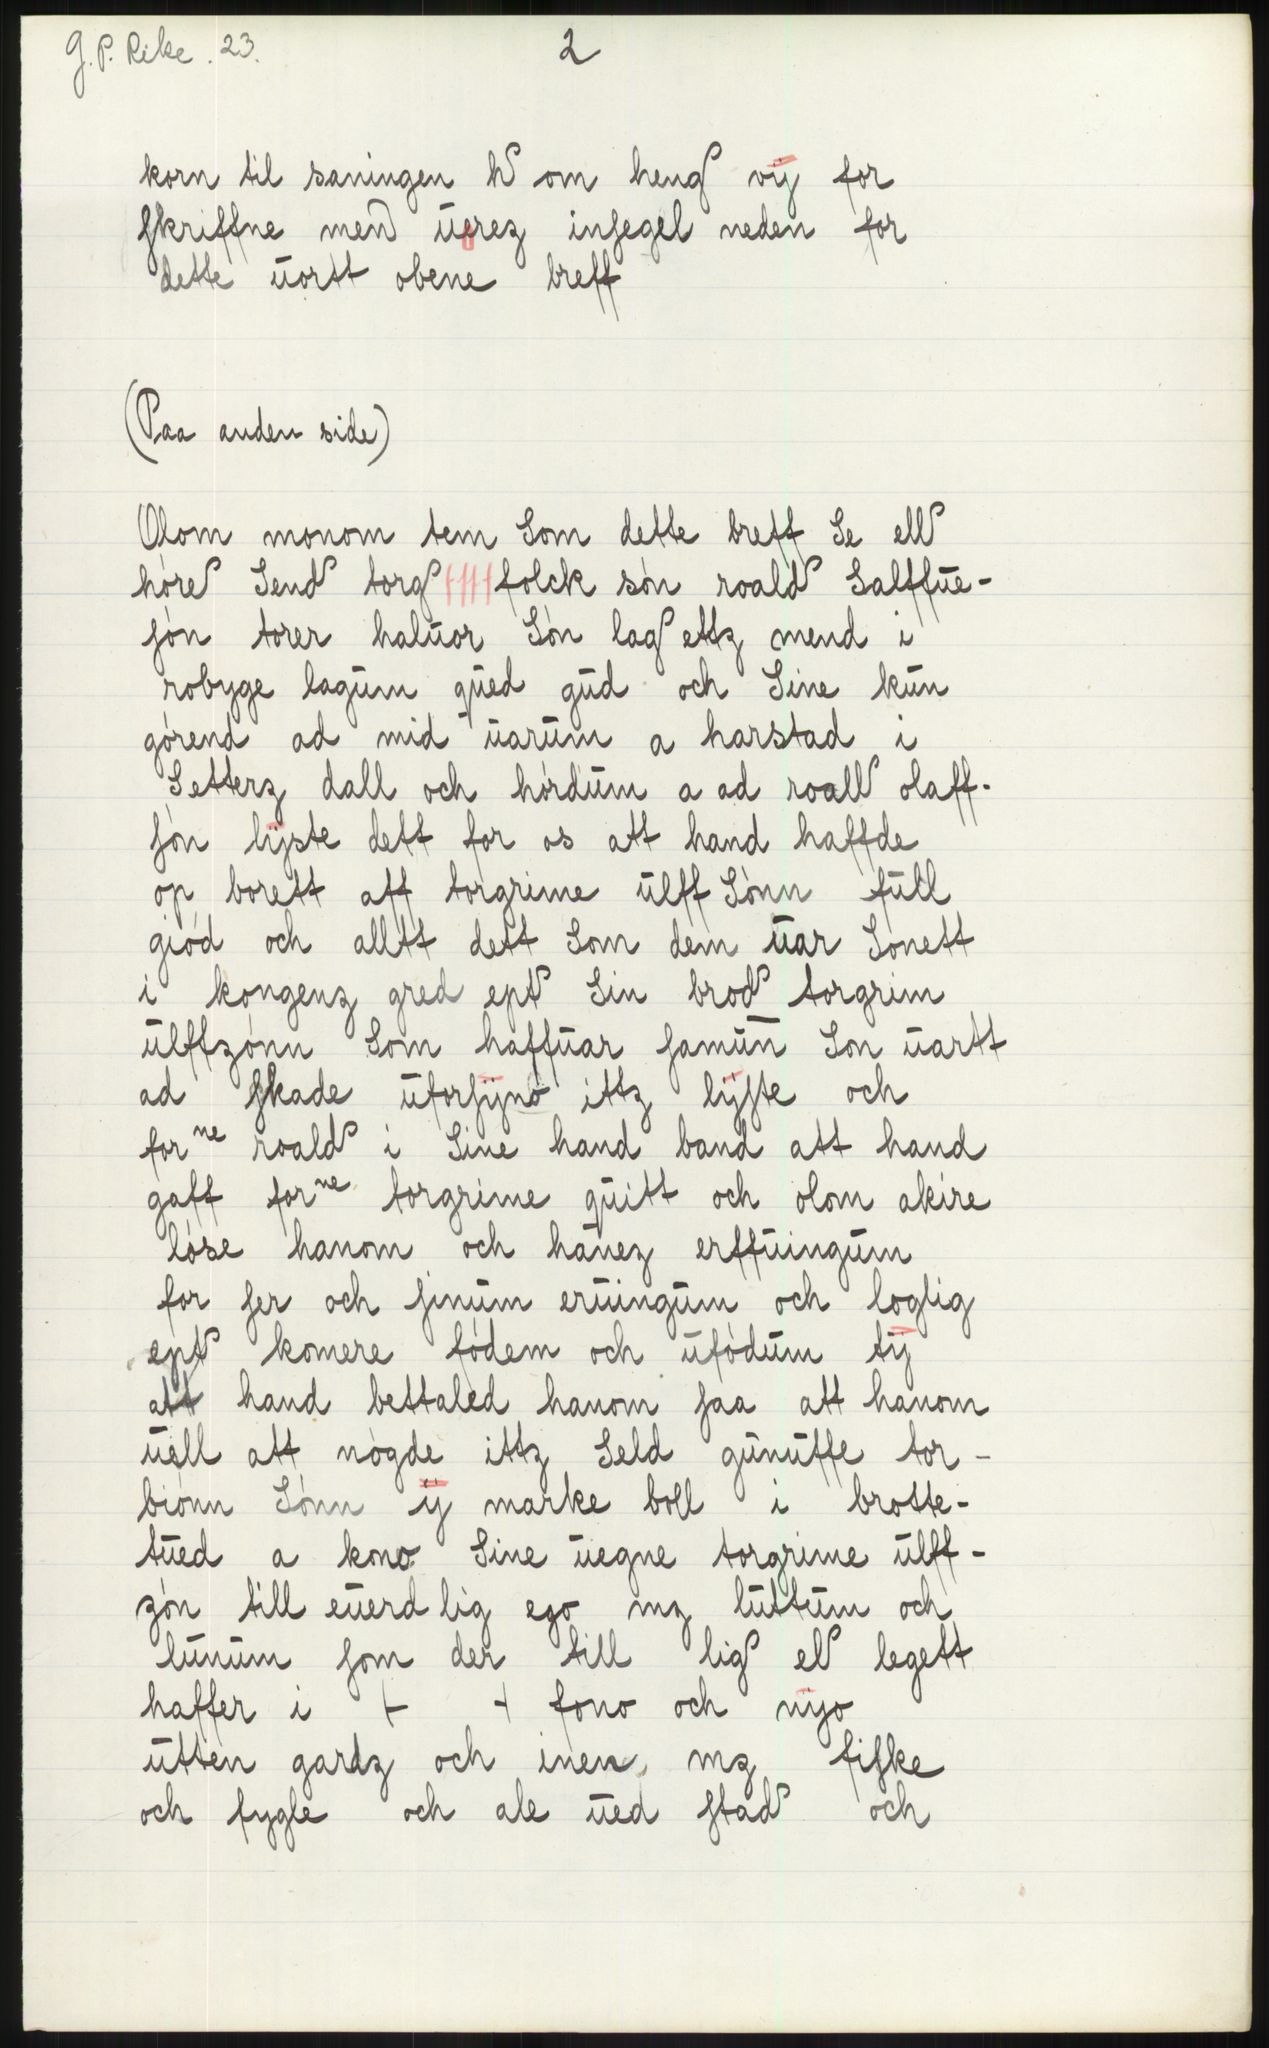 G. P. Rike. 23.
2
korn til saningen h om heng vij for
skriffne mend uerez insegel neden for
dette uortt obene breff
(Paa anden side)
Olom monom tem Som dette breff Se ell
höre Send torg folck sön roald Salffue-
sön torer haluor Sön lag ettz mend i
robyge lagum qued gud och Sine kun
görend ad mid uarum a harstad i
Setterz dall och hördum a ad roall olaff-
sön lijste dett for os att hand haffde
op borett aff torgrime ulff Sönn full
giöd och alltt dett Som dem uar Sonett
i kongenz gred ept Sin brod torgrim
ulffzönn Som haffuar samun Son uartt
ad skade uforsijno ittz lijste och
for ne roald i Sine hand band att hand
gaff for ne torgrime quitt och olom akire
löse hanom och hanez erffuingum
for ser och sinum eruingum och loglig
ept komere födem och ufödum tij
att hand bettaled hanom saa att hanom
uell att nögde ittz Seld gunuffe tor-
biönn Sönn ij marke boll i brotte-
tued a kono Sine uegne torgrime ulff-
zön till euerd lig ego mz luttum och
lunum som der till lig ell legett
haffer i fono och nyo
utten gardz och inen mz fiske
och fygle och ale ued stad och